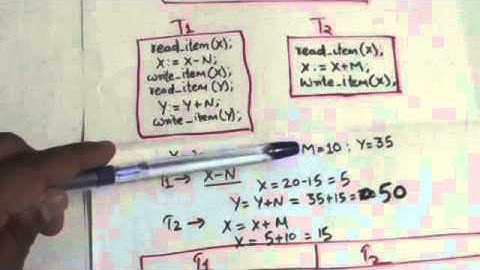 T1
read_item(X);
X:= X-N;
write_item(X);
read_item(Y);
Y:= Y+N;
write_item(Y);
T2
read_item(X);
X:= X+M;
write_item(X);
M=10; Y=35
T1 → X-N
X=20-15=5
Y= Y+N = 35+15= 50
T2 → X= X+M
X= 5+10 = 15
T1 T2